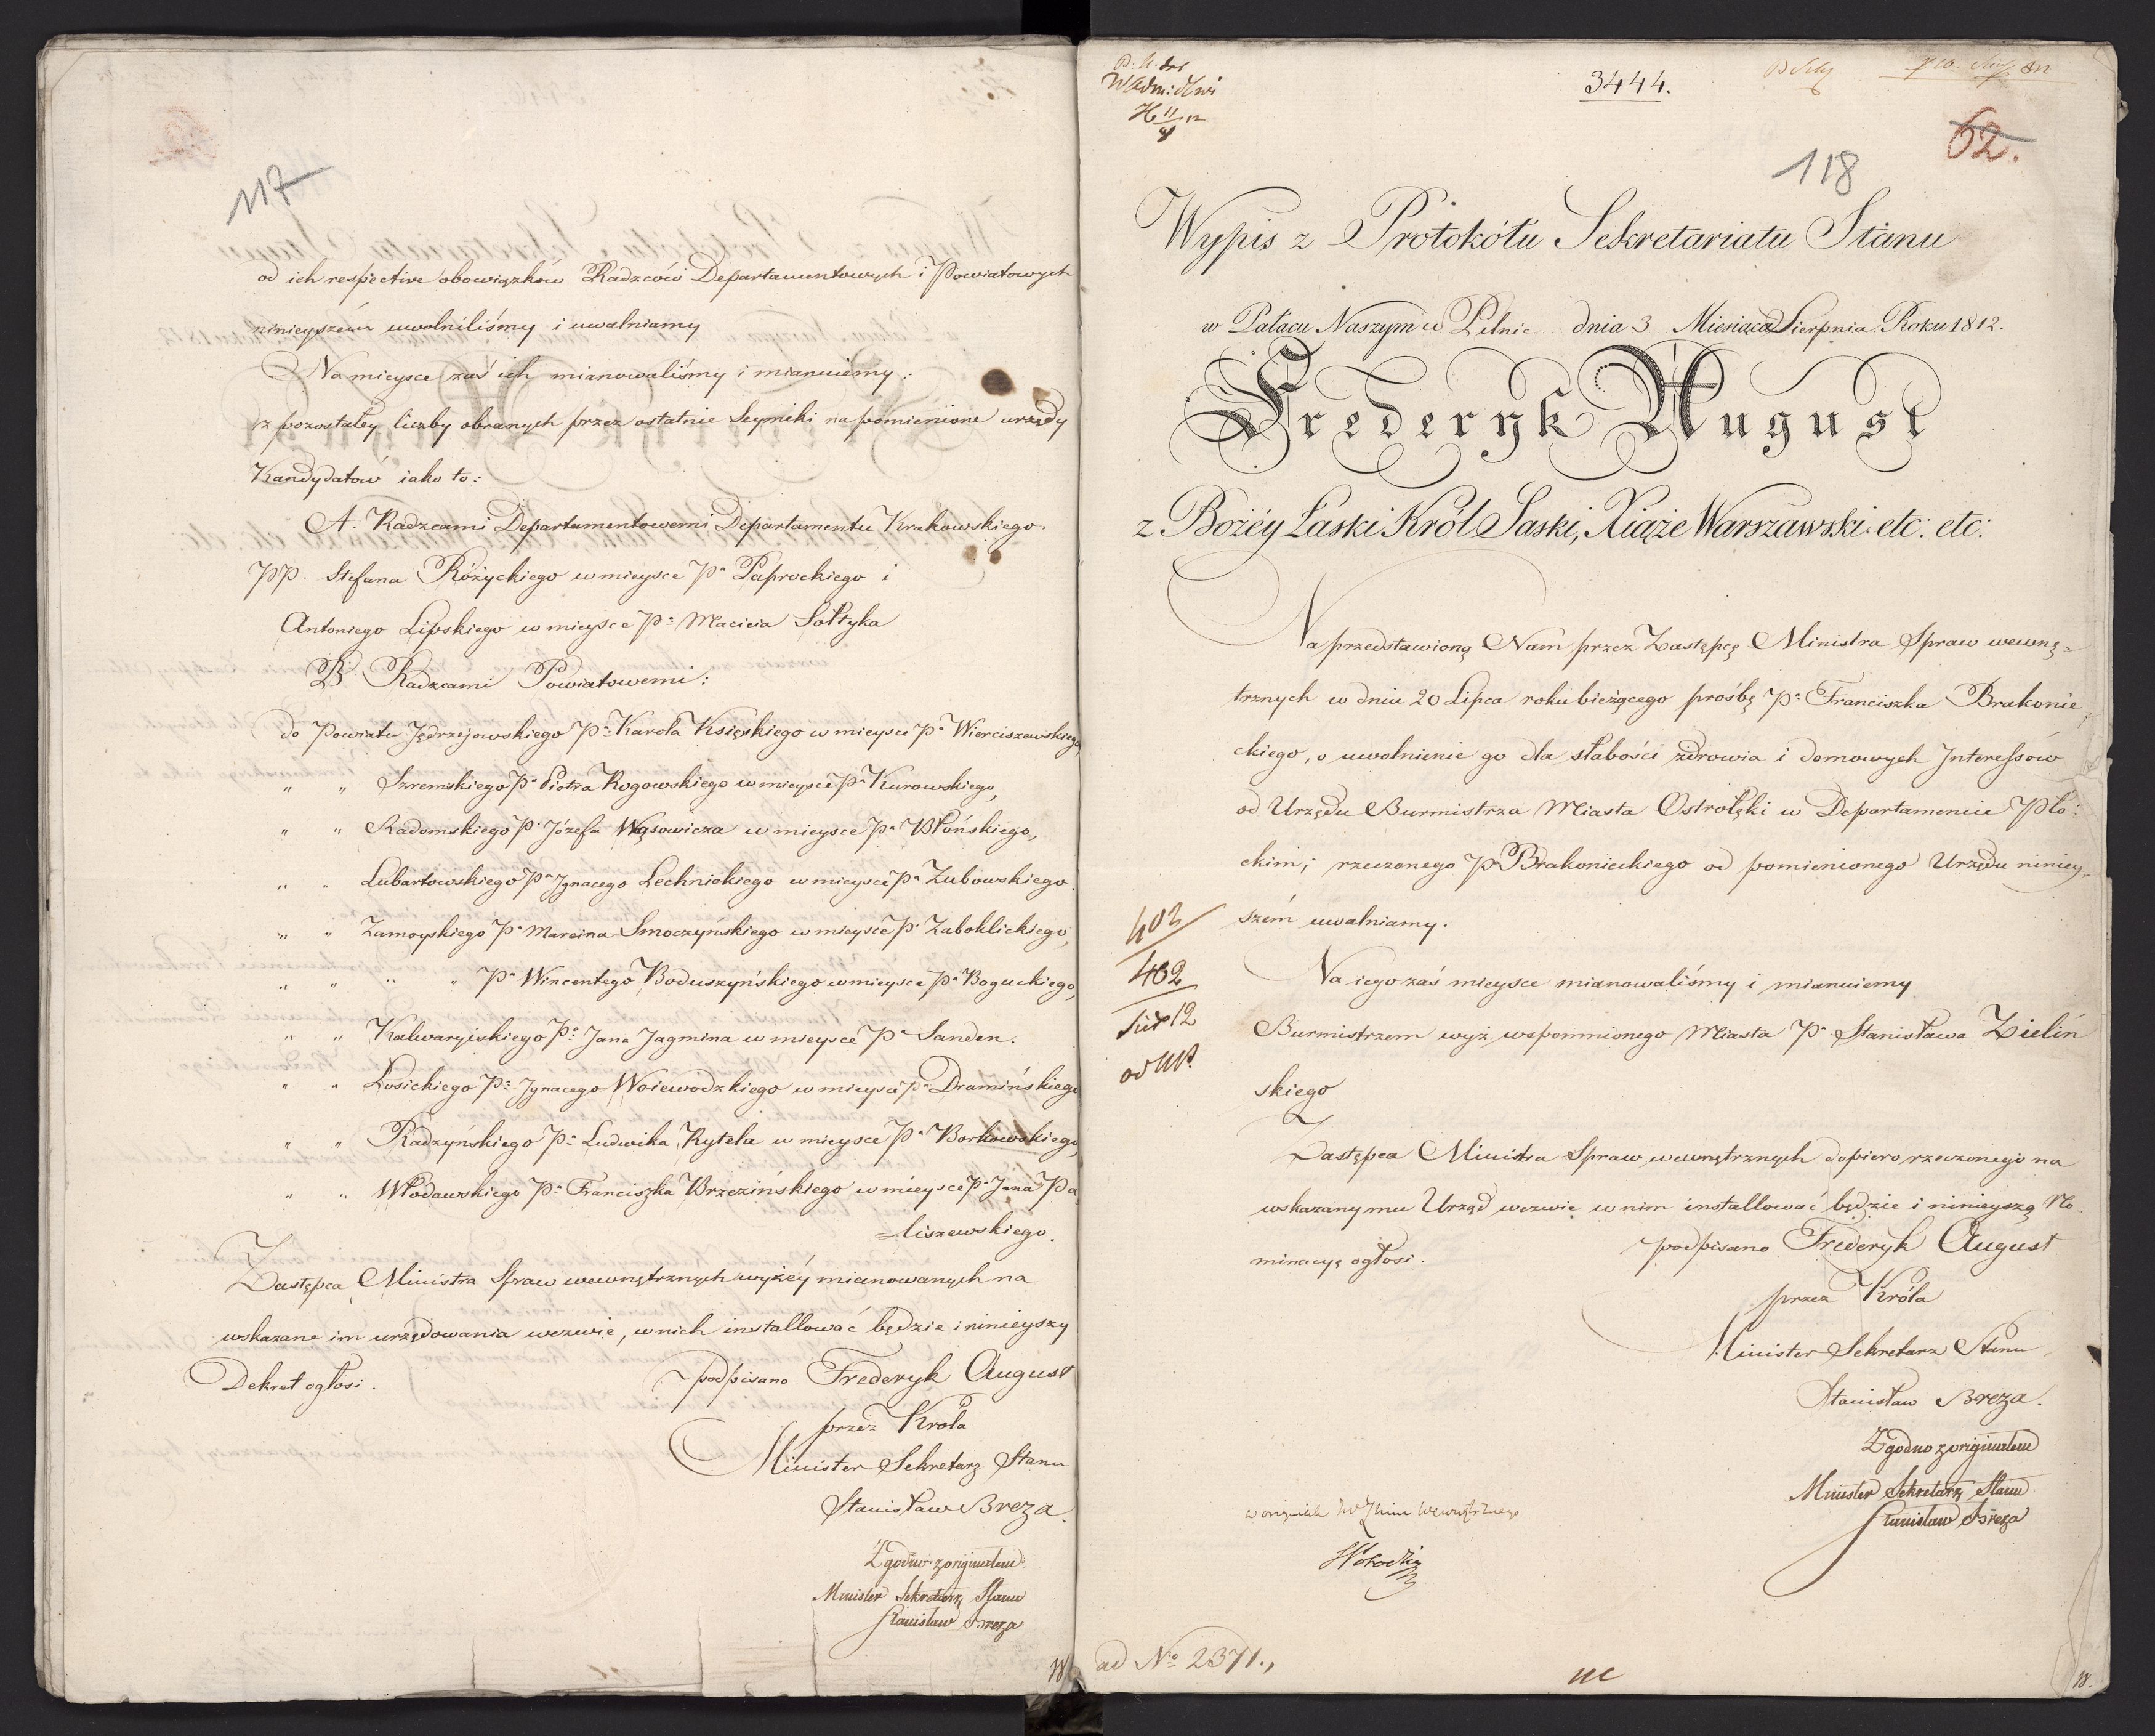 117
od ich respective obowiązków Radzców Departamentowych i Powiatowych
ninieyszém uwolniliśmy i uwalniamy
Na mieysce zaś ich mianowaliśmy i mianuiemy:
z pozostałey liczby obranych przez ostatnie Seymiki na pomienione urzędy
Kandydatów iako to:
A. Radzcami Departamentowemi Departamentu Krakowskiego.
PP. Stefana Różyckiego w mieysce Pa Paprockiego i
Antoniego Lipskiego w mieysce Pa Macieia Sołtyka
B Radzcami Powiatowemi:
do Powiatu Jędrzejowskiego Pa Karola Księskiego w mieysce Pa Wierciszewskiego,
" " Szremskiego Pa Piotra Rogowskiego w mieysce Pa Kurowskiego,
" " Radomskiego Pa Józefa Wąsowicza w mieysce Pa Błońskiego,
" " Lubartowskiego Pa Ignacego Lechnickiego w mieysce Pa Zubowskiego.
" " Zamoyskiego Pa Marcina Smoczyńskiego w mieysce Pa Zaboklickiego,
" " " " Pa Wincentego Boduszyńskiego w mieysce Pa Boguckiego,
" " Kalwaryiskiego Pa Jana Jagmina w mieysce Pa Sanden.
" " Łosickiego Pa Ignacego Woiewodzkiego w mieysce Pa Dramińskiego
" " Radzyńskiego Pa Ludwika Rytela w mieysce Pa Borkowskiego,
" " Włodawskiego Pa Franciszka Brzezińskiego w mieysce Pa Jana Pa
liszewskiego.
Zastępca Ministra Spraw wewnętrznych wyżéy mianowanych na
wskazane im urzędowania wezwie, w nich installować będzie i ninieyszy
Dekret ogłosi. podpisano Frederyk August
przez Króla
Minister Sekretarz Stanu
Stanisław Breza.
Zgodno z originałem
Minister Sekretarz Stanu
Stanisław Breza
3444.
62.
118
Wypis z Protokółu Sekretariatu Stanu
w Pałacu Naszym w Pilnic dnia 3 Miesiąca Sierpnia Roku 1812.
Frederyk August
z Bożéy Łaski Król Saski, Xiąże Warszawski etc: etc:
Na przedstawioną Nam przez Zastępcę Ministra Spraw wewnę-
trznych w dniu 20 Lipca roku bieżącego prośbę Pa Franciszka Brakonie-
ckiego, o uwolnienie go dla słabości zdrowia i domowych Interessów
od Urzędu Burmistrza Miasta Ostrołęki w Departamencie Pło-
ckim; rzeczonego Pa Brakonieckiego od pomienionego Urzędu niniey-
szém uwalniamy.
403
402
Na iego zaś mieysce mianowaliśmy i mianuiemy
Burmistrzem wyż wspomnionego Miasta Pa Stanisława Zieliń
skiego
Zastępca Ministra Spraw wewnętrznych dopiero rzeczonego na
wskazany mu Urząd wezwie w nim installować będzie i ninieyszą No
minacyę ogłosi. podpisano Frederyk August
przez Króla
Minister Sekretarz Stanu
Stanisław Breza.
Zgodno z originałem
Minister Sekretarz Stanu
Stanisław Breza
ad No 2371.,